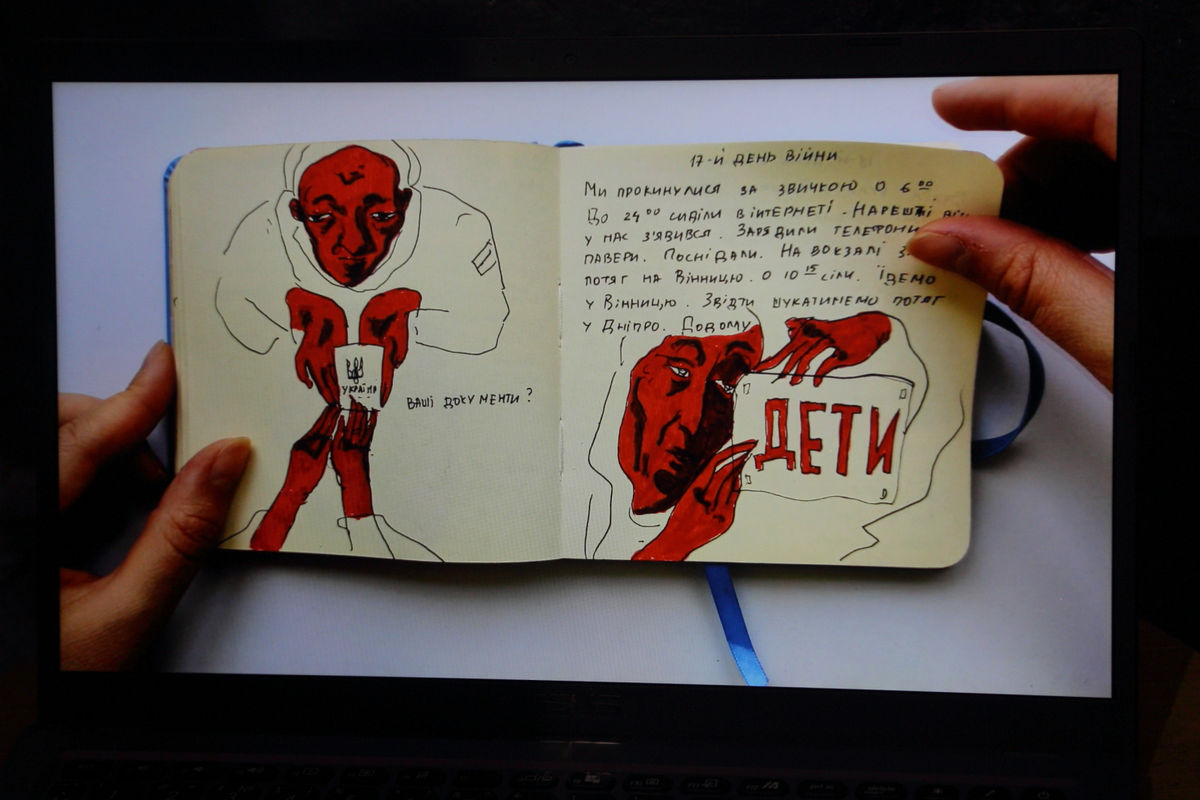 УКРАЇНА
ВАШІ ДОКУМЕНТИ?
17-Й ДЕНЬ ВІЙНИ
МИ ПРОКИНУЛИСЯ ЗА ЗВИЧКОЮ О 6 00
ДО 24 00 СИДІЛИ В ІНТЕРНЕТІ. НАРЕШТІ ВІН
У НАС З'ЯВИВСЯ. ЗАРЯДИЛИ ТЕЛЕФОНИ
ПАВЕРИ. ПОСНІДАЛИ. НА ВОКЗАЛІ
ПОТЯГ НА ВІННИЦЮ. О 10 15 СІЛИ. ЇДЕМО
У ВІННИЦЮ. ЗВІДТИ ШУКАТИМЕМО ПОТЯГ
У ДНІПРО. ДОДОМУ
ДЕТИ